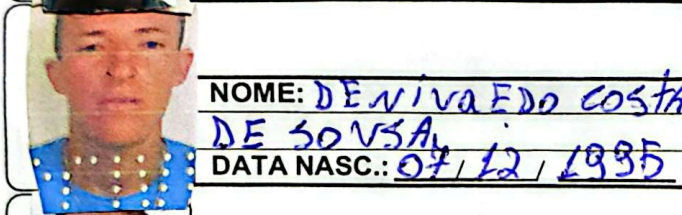 NOME: DENIVAEDO COSTA
DE SOUSA
DATA NASC.: 07/12/1995